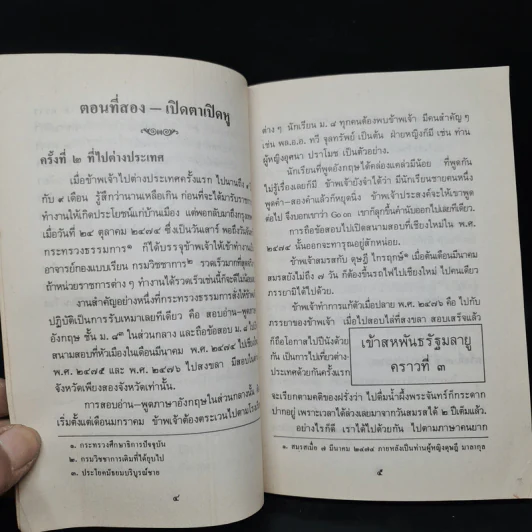 ตอนที่สอง – เปิดตาเปิดหู
ครั้งที่ ๒ ที่ไปต่างประเทศ
เมื่อข้าพเจ้าไปต่างประเทศครั้งแรก ไปนานถึง
กับ ๙ เดือน รู้สึกว่านานเหลือเกิน ก่อนที่จะได้มารับราช
ทำงานให้เกิดประโยชน์แก่บ้านเมือง แต่พอกลับมาถึงกรุง
เมื่อวันที่ ๒๔ ตุลาคม ๒๔๗๔ (ซึ่งเป็นวันเสาร์ พอถึงวันจัน
กระทรวงธรรมการ๑ ก็ได้บรรจุข้าพเจ้าให้เข้าทำงาน
อาจารย์กองแบบเรียน กรมวิชชาการ๒ รวดเร็วมากที่สุด
ถ้าหน่วยราชการต่าง ๆ ทำงานได้รวดเร็วเช่นนี้ก็จะดีไม่น้อย
งานสำคัญอย่างหนึ่งที่กระทรวงธรรมการสั่งให้ข้าพ
ปฏิบัติเป็นการรับเหมาเลยทีเดียว คือ สอบอ่าน–พูด
อังกฤษ ชั้น ม. ๘๓ ในส่วนกลาง และถือข้อสอบ ม. ๘ ไป
สนามสอบที่หัวเมืองในเดือนมีนาคม พ.ศ. ๒๔๗๔ ไปเชียง
พ.ศ. ๒๔๗๕ และ ๒๔๗๖ ไปสงขลา มีสนามสอบ
จังหวัดเพียงสองจังหวัดเท่านั้น
การสอบอ่าน–พูดภาษาอังกฤษในส่วนกลางนั้น
เริ่มตั้งแต่เดือนมกราคม ข้าพเจ้าต้องตระเวนไปตามโรง
๑. กระทรวงศึกษาธิการปัจจุบัน
๒. กรมวิชชาการเดิมที่ได้ยุบไป
๓. ประโยคมัธยมบริบูรณ์ชาย
๔
ต่าง ๆ นักเรียน ม. ๘ ทุกคนต้องพบข้าพเจ้า มีคนสำคัญ ๆ
เช่น พล.อ.อ. ทวี จุลทรัพย์ เป็นต้น ฝ่ายหญิงก็มี เช่น ท่าน
ผู้หญิงอุศนา ปราโมช เป็นตัวอย่าง
นักเรียนที่พูดอังกฤษได้คล่องแคล่วมีน้อย ที่พูดกัน
ไม่รู้เรื่องเลยก็มี ข้าพเจ้ายังจำได้ว่า มีนักเรียนชายคนหนึ่ง
พูดคำ–สองคำแล้วก็หยุดนิ่ง ข้าพเจ้าประสงค์จะให้เขาพูด
ต่อไป จึงบอกเขาว่า Go on เขาก็ลุกขึ้นคำนับออกไปเลยทีเดียว
การถือข้อสอบไปเปิดสนามสอบที่เชียงใหม่ใน พ.ศ.
๒๔๗๔ นั้นออกจะทารุณอยู่สักหน่อย
ข้าพเจ้าสมรสกับ ดุษฎี ไกรฤกษ์๑ เมื่อต้นเดือนมีนาคม
สมรสยังไม่ถึง ๗ วัน ก็ต้องขึ้นรถไฟไปเชียงใหม่ ไปคนเดียว
ภรรยามิได้ไปด้วย
ข้าพเจ้าทำการแก้ตัวเมื่อปลาย พ.ศ. ๒๔๗๖ คือ ไปกับ
ภรรยาของข้าพเจ้า เมื่อไปสอบไล่ที่สงขลา สอบเสร็จแล้ว
ก็ถือโอกาสไปปีนัง
กัน เป็นการไปเที่ยวต่าง
ประเทศด้วยกันครั้งแรก
เข้าสหพันธรัฐมลายู
คราวที่ ๓
จะเรียกตามคติของฝรั่งว่า ไปดื่มน้ำผึ้งพระจันทร์ก็กระดาก
ปากอยู่ เพราะเวลาได้ล่วงเลยมาจากวันสมรสได้ ๒ ปีเต็มแล้ว
อย่างไรก็ดี เราได้ไปด้วยกัน ไปตามภาษาคนยาก
๑. สมรสเมื่อ ๗ มีนาคม ๒๔๗๔ ภายหลังเป็นท่านผู้หญิงดุษฎี มาลากุล
๕